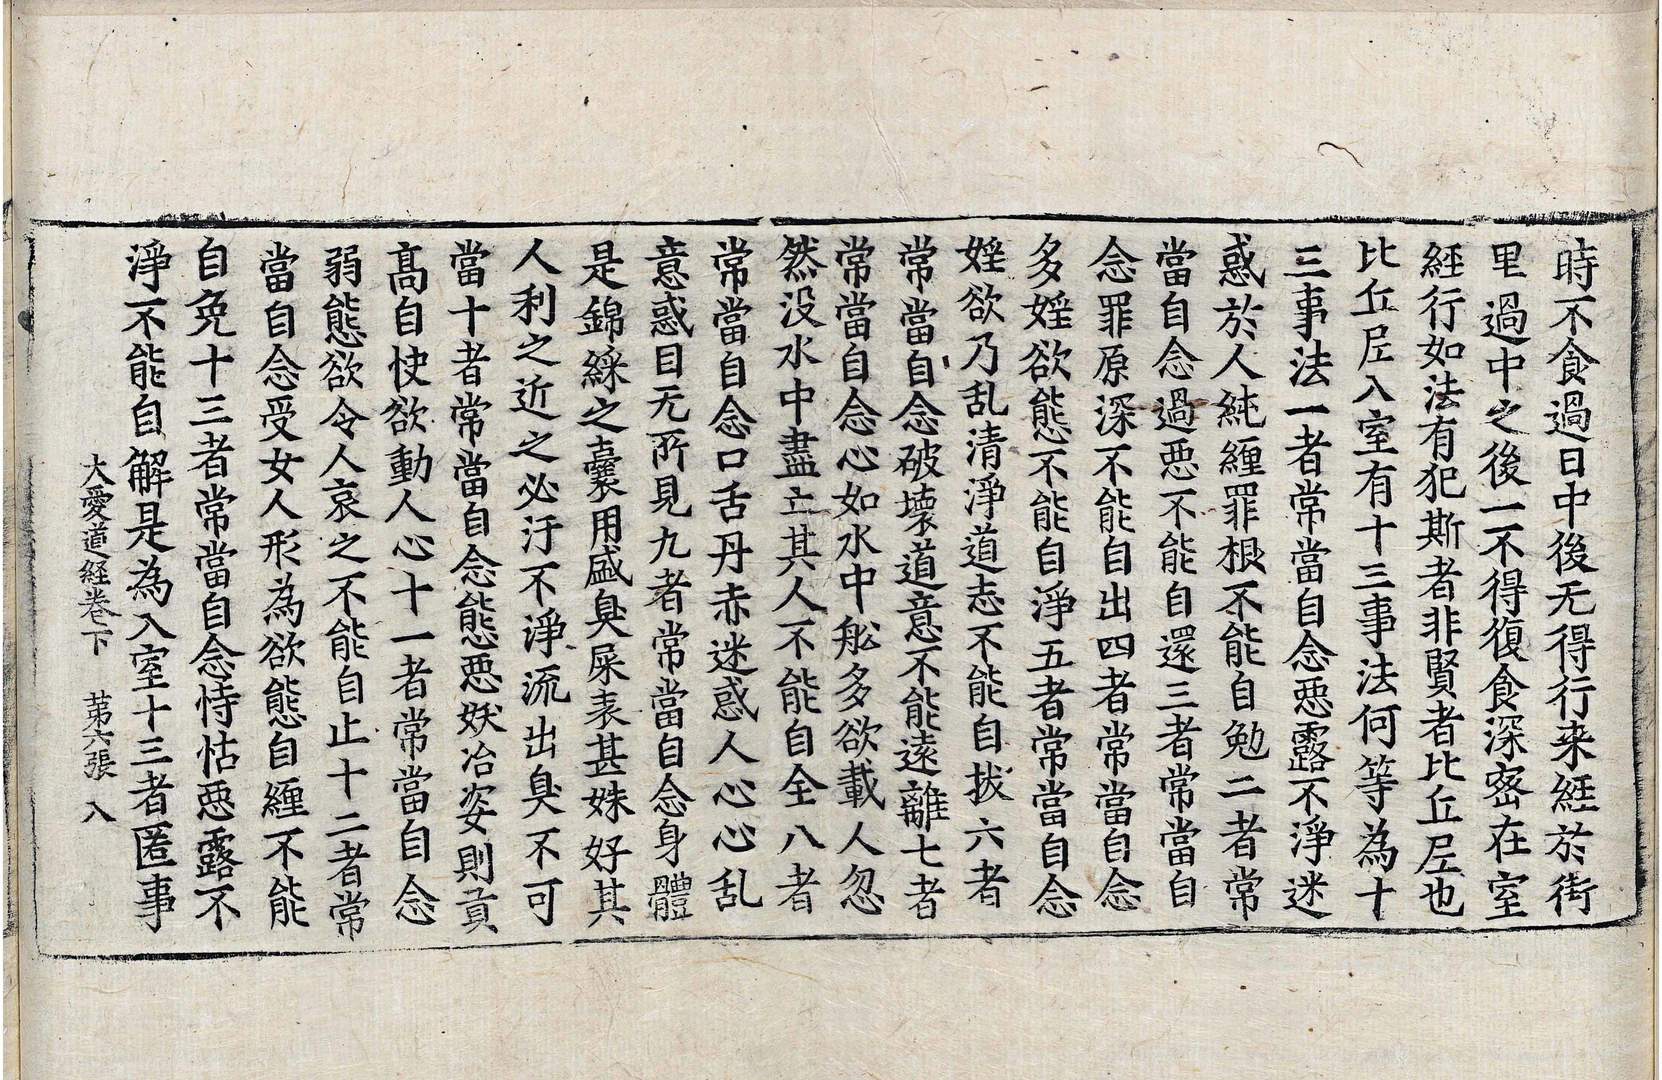 時不食過日中後无得行来経於街
里過中之後一不得復食深宻在室
経行如法有犯斯者非賢者比丘尼也
比丘尼入室有十三事法何等為十
三事法一者常當自念惡露不淨迷
惑於人純纏罪根不能自勉二者常
當自念過惡不能自還三者常當自
念罪原深不能自出四者常當自念
多婬欲態不能自淨五者常當自念
婬欲乃乱清淨道志不能自拔六者
常當自念破壊道意不能逺離七者
常當自念心如水中舩多欲載人忽
然没水中盡亡其人不能自全八者
常當自念口舌丹赤迷惑人心心乱
意惑目无所見九者常當自念身體
是錦綵之囊用盛臭屎表甚姝好其
人利之近之必汙不淨流出臭不可
當十者常當自念態惡妖冶姿則貢
髙自快欲動人心十一者常當自念
弱態欲令人哀之不能自止十二者常
當自念受女人形為欲態自纏不能
自免十三者常當自念恃怙惡露不
淨不能自解是為入室十三者匿事
大愛道経卷下　苐六張　入